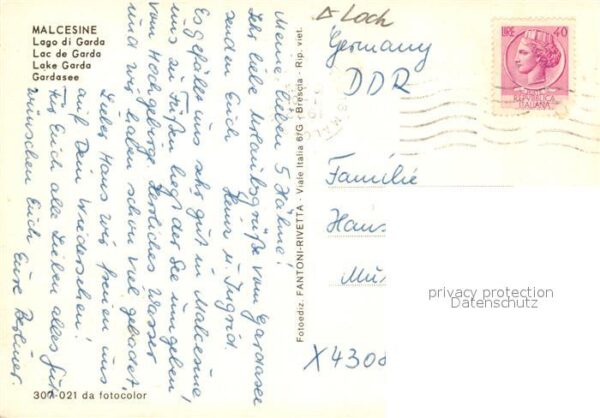 MALCESINE
Lago di Garda
Lac de Garda
Lake Garda
Gardasee
Meine lieben 5 Hähne!
Sehr liebe Urlaubsgrüße vom Gardasee
senden Euch Heinz u. Ingrid.
Es gefällt uns sehr gut in Malcesine,
uns zu Füßen liegt der See umgeben
vom Hochgebirge. Herrliches Wasser
und wir haben schon viel gebadet.
Lieber Hans wir freuen uns
auf Dein Wiedersehen!
Für Euch alle Lieben alles Gute
wünschen Euch Eure Berliner.
307-021 da fotocolor
Fotoediz. FANTONI-RIVETTA - Viale Italia 6/G - Brescia - Rip. viet.
Loch
Germany
DDR
Familie
Hans
X4308
LIRE 40
REPVBBLICA
ITALIANA
privacy protection
Datenschutz